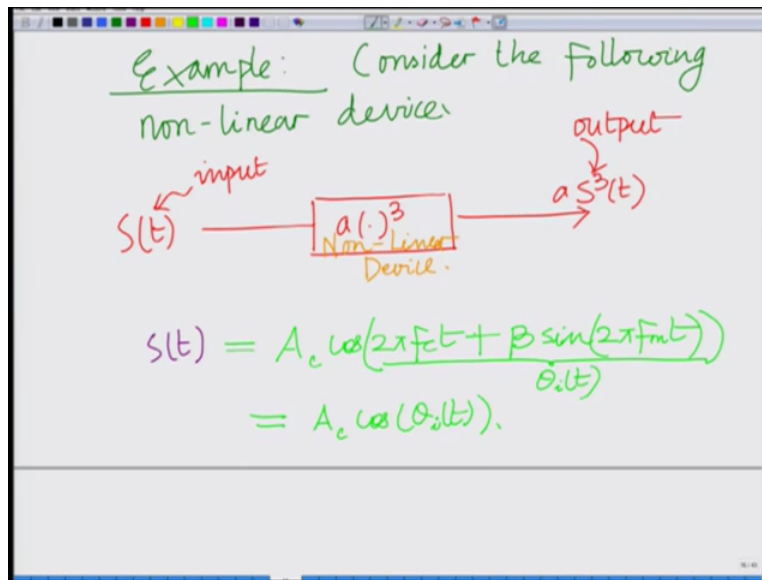 Example: Consider the following
non-linear device.
input
output
S(t)
a(·)³
a S³(t)
Non-Linear
Device.
S(t) = A_c cos(2πf_ct + β sin(2πf_mt))
θ_i(t)
= A_c cos(θ_i(t)).